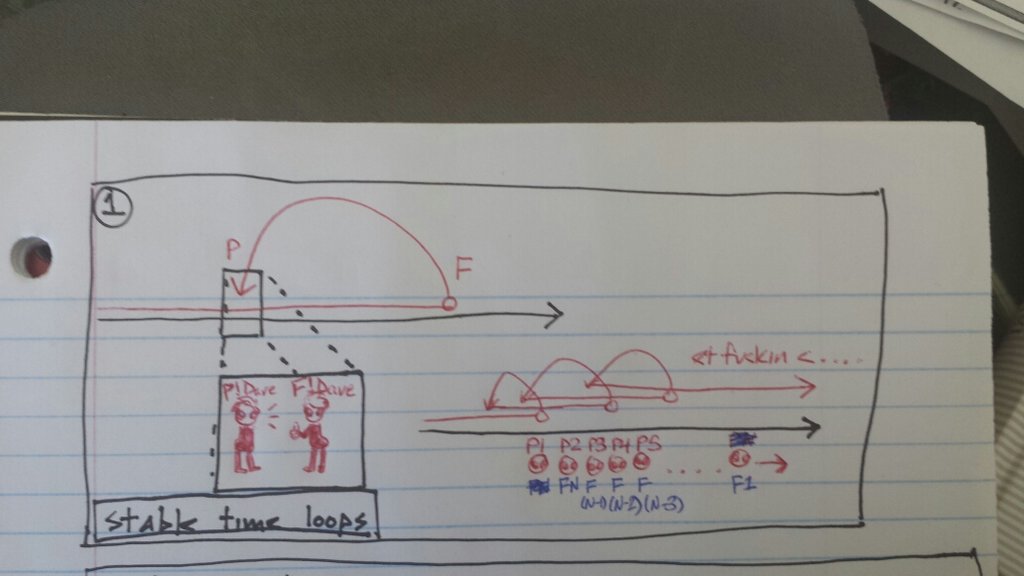 1
P
F
P!Dave F!Dave
et fuckin c....
P1 P2 P3 P4 P5
FN F F F ..... F1
(N-1) (N-2) (N-3)
stable time loops